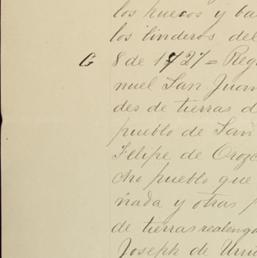 los huecos y ba
los linderos del
G 8 de 1727 = Reg
nuel San Juan
des de tierras d
pueblo de San
Felipe de Orozc
cho pueblo que
ñada y otras p
de tierras realengo
Joseph de Urru